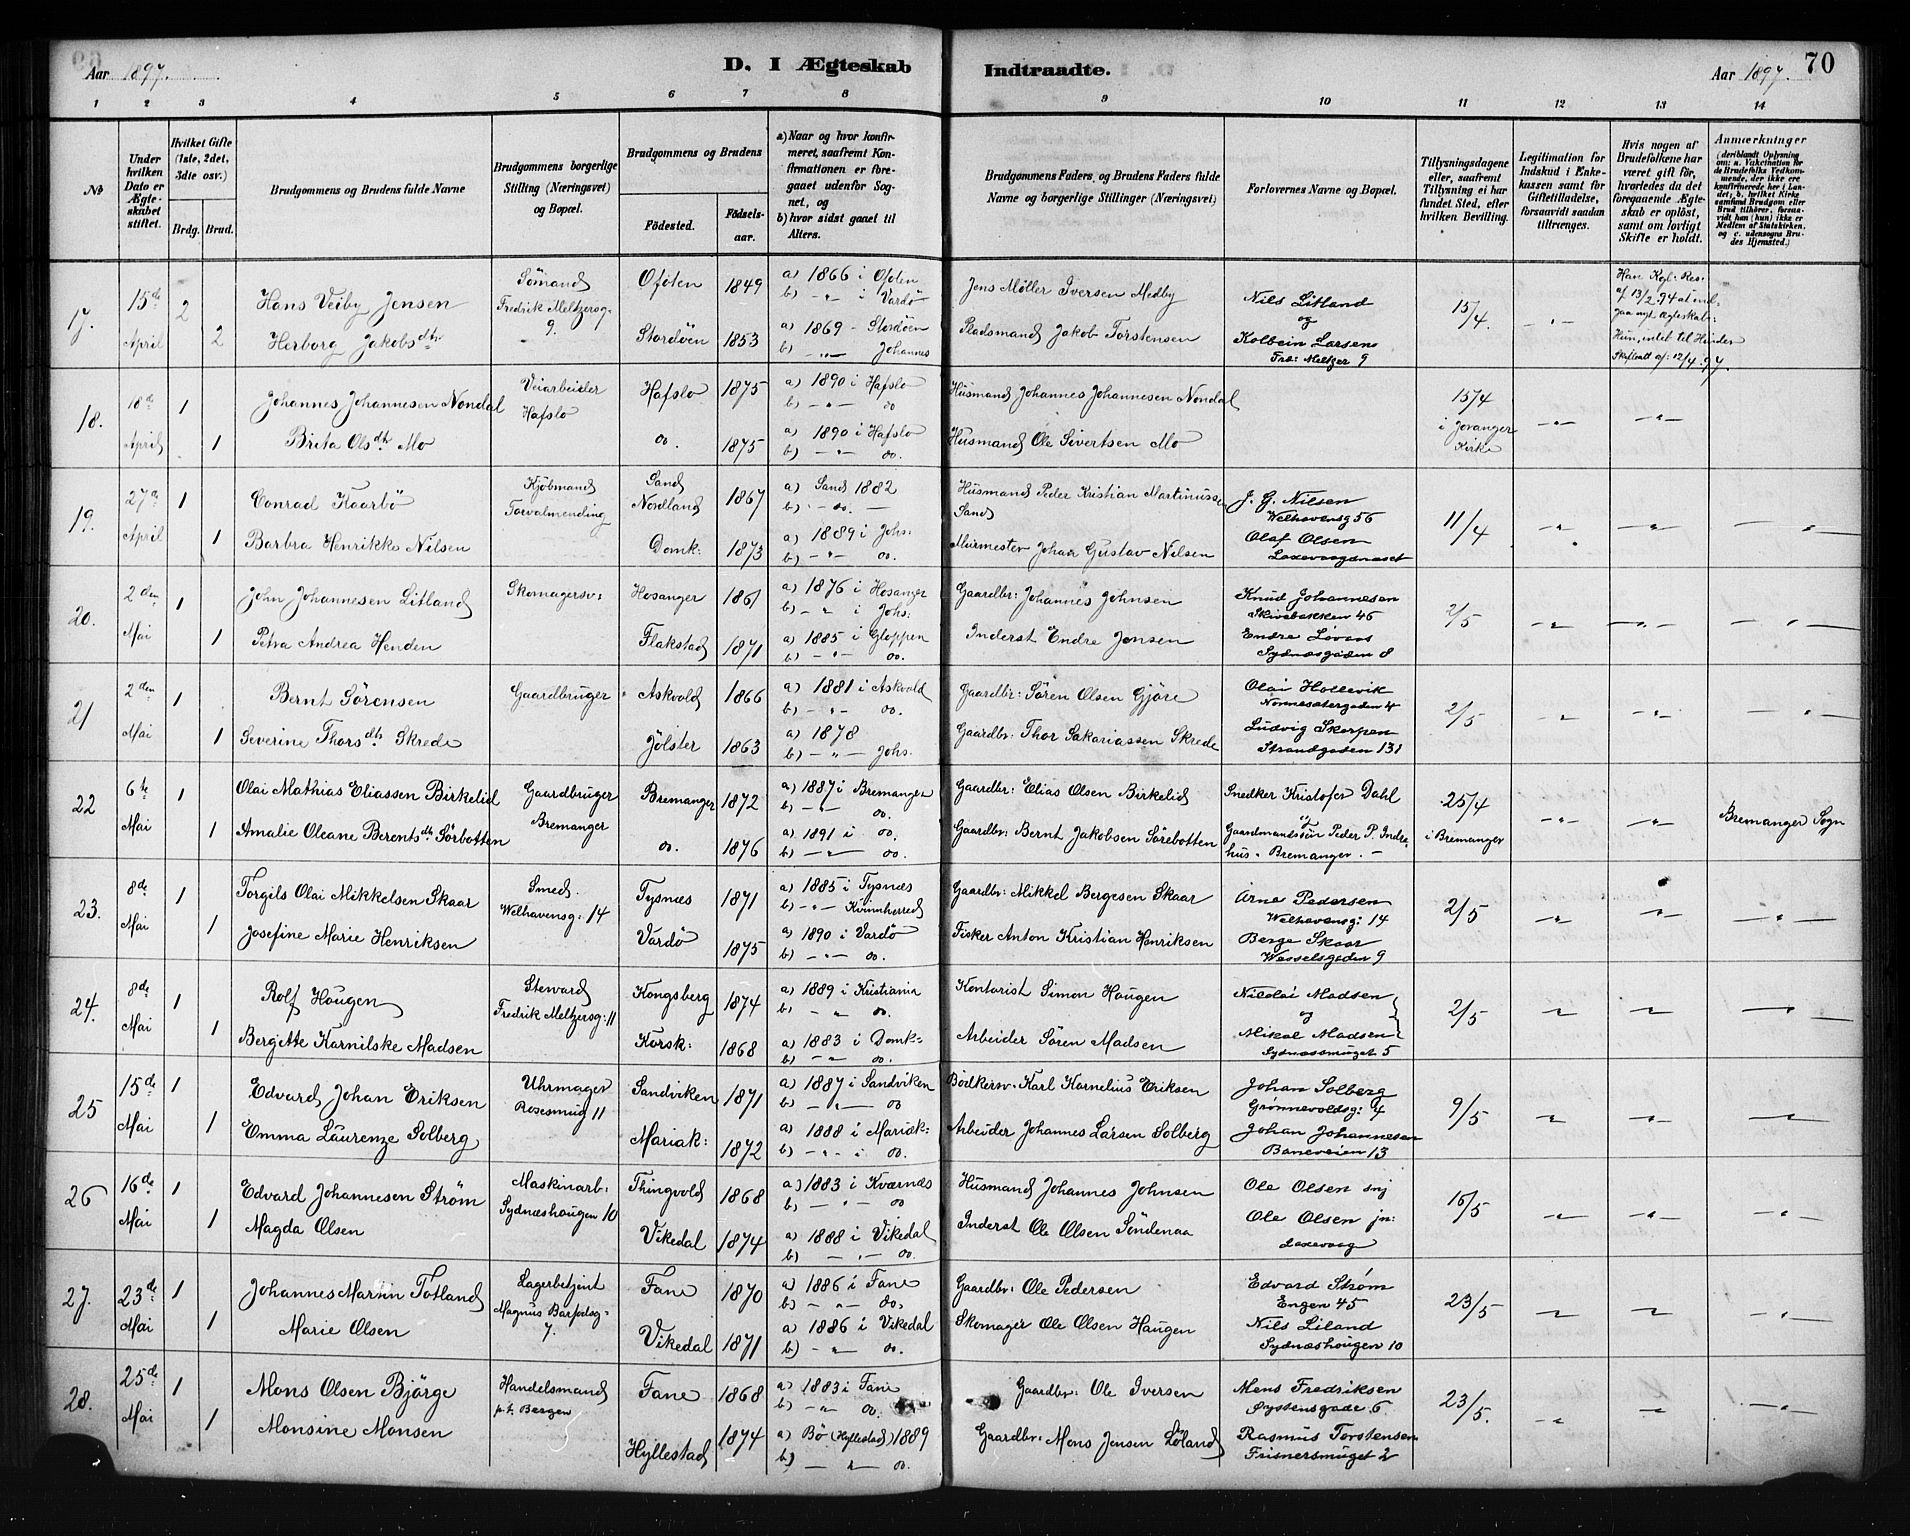 Aar 1897.
D. I Ægteskab
Indtraadte.
Aar 1897.
70
1 2 3 4 5 6 7 8 9 10 11 12 13 14
No
Under hvilken Dato er Ægteskabet stiftet.
Hvilket Gifte (1ste, 2det, 3die osv.)
Brdg. Brud.
Brudgommens og Brudens fulde Navne
Brudgommens borgerlige Stilling (Næringsvei) og Bopæl.
Brudgommens og Brudens
Födested. Födselsaar.
a) Naar og hvor konfirmeret, saafremt Konfirmationen er foregaaet udenfor Sognet, og
b) hvor sidst gaaet til Alters.
Brudgommens Faders, og Brudens Faders fulde Navne og borgerlige Stillinger (Næringsvei)
Forlovernes Navne og Bopæl.
Tillysningsdagene eller, saafremt Tillysning ei har fundet Sted, efter hvilken Bevilling.
Legitimation for Indskud i Enkekassen samt for Giftetilladelse, forsaavidt saadan tiltrænges.
Hvis nogen af Brudefolkene har været gift för, hvorledes da det foregaaende Ægteskab er oplöst, samt om lovligt Skifte er holdt.
Anmærkninger (deriblandt Oplysning om: a. Vakcination for de Brudefolks Vedkommende, der ikke ere konfirmerede her i Landet; b. hvilket Kirkesamfund Brudgom eller Brud tilhörer, forsaavidt han (hun) ikke er Medlem af Statskirken, og c. udensogns Brudes Hjemsted.)
17. 15de April 2 Hans Veiby Jensen Sömand Fredrik Meltzersg. 9. Ofoten 1849 a) 1866 i Ofoten b) -"- i Vardö Jens Möller Iversen Medby Nils Litland og 15/4. -"- Han Kgl. Res. af 13/2 94 at indgaa nyt Ægteskab.
2 Herborg Jakobsdtr Stordöen 1853 a) 1869 - Stordöen b) -"- Johannes Pladsmand Jakob Torstensen Kolbein Larsen Fred: Meltzer 9 Hun, intet til Hinder Skifteatt af: 12/4 97.
18. 18de April 1 Johannes Johannesen Nondal Veiarbeider Hafslo Hafslo 1875 a) 1890 i Hafslo b) -"- do Husmand Johannes Johannesen Nondal 15/4 i Joranger Kirke -"- -"-
1 Brita Olsdtr Mo do. 1875 a) 1890 i Hafslo b) -"- do. Husmand Ole Sivertsen Mo
19. 27de April 1 Conrad Kaarbö Kjöbmand Torvalmending Sand Nordland 1867 a) Sand 1882 b) -do. - Husmand Peder Kristian Martinussen Sand J. G. Nilsen Welhavensg 56 11/4 -"- -"- -"-
1 Barbra Henrikke Nilsen Domk: 1873 a) 1889 i Johs: b) -"- do. Murmester Johan Gustav Nilsen Olaf Olsen Laxevaagsnæset
20. 2den Mai 1 John Johannesen Litland Skomagersv: Hosanger 1861 a) 1876 i Hosanger b) -"- i Johs: Gaardbr: Johannes Johnsen Knud Johannesen Skivebakken 46 2/5 -"- -"- -"-
1 Petra Andrea Henden Flakstad 1871 a) 1885 i Gloppen b) -"- do. Inderst Endre Jensen Endre Sydnæsgaden 8
21 2den Mai 1 Bernt Sörensen Gaardbruger Askvold 1866 a) 1881 i Askvold b) -"- do. Gaardbr: Sören Olsen Gjöre Olai Hollevik Nonnesætergaden 4 2/5 -"- -"- -"-
1 Severine Thorsdtr Skrede Jölster 1863 a) 1878 b) -"- Johs. Gaardbr: Thor Sakariassen Skrede Ludvig Skorpen Strandgaden 131
22 6te Mai 1 Olai Mathias Eliassen Birkelid Gaardbruger Bremanger Bremanger 1872 a) 1887 i Bremanger b) -"- do. Gaardbr: Elias Olsen Birkelid Snedker Kristofer Dahl og 25/4 i Bremanger -"- -"- Bremanger Sogn
1 Amalie Oleane Berentsdtr Sörbotten do. 1876 a) 1891 i do. b) -"- do. Gaardbr: Bernt Jakobsen Sörebotten Gaardmandssön Peder P. Indrehus - Bremanger. -
23. 8de Mai 1 Torgils Olai Mikkelsen Skaar Smed. Welhavensg: 14 Tysnæs 1871 a) 1885 i Tysnæs b) -"- Kvinnherred Gaardbr: Mikkel Bergesen Skaar Arne Pedersen Welhavensg: 14 2/5 -"- -"- -"-
1 Josefine Marie Henriksen Vardö 1875 a) 1890 i Vardö b) -"- do. Fisker Anton Kristian Henriksen Berge Skaar Wesselsgaden 9
24. 8de Mai 1 Rolf Haugen Steward Fredrik Meltzersg: 11 Kongsberg 1874 a) 1889 i Kristiania b) -"- do. Kontorist Simon Haugen Nicolai Madsen og 2/5 -"- -"- -"-
1 Bergitte Karnilske Madsen Korsk: 1868 a) 1883 i Domk: b) -"- do. Arbeider Sören Madsen Mikal Madsen Sydnæssmuget 5
25 15de Mai 1 Edvard Johan Eriksen Uhrmager Rosesmug 11 Sandviken 1871 a) 1887 i Sandviken b) -"- do Bödkersv. Karl Kornelius Eriksen Johan Solberg Grönnevoldsg: 4 9/5 -"- -"- -"-
1 Emma Laurenze Solberg Mariak: 1872 a) 1888 i Mariak: b) -"- i do. Arbeider Johannes Larsen Solberg Johan Johannesen Baneveien 13
26 16de Mai 1 Edvard Johannesen Ström Maskinarb. Sydnæshougen 10 Thingvold 1868 a) 1883 i Kværnes b) -"- do Husmand Johannes Johnsen Ole Olsen snj 16/5 -"- -"- -"-
1 Magda Olsen Vikedal 1874 a) 1888 i Vikedal b) -"- do. Inderst Ole Olsen Söndenaa Ole Olsen jn: Laxevaag
27. 23de Mai 1 Johannes Martin Totland Lagerbetjent Magnus Barfodsg. 7. Fane 1870 a) 1886 i Fane b) -"- do. Gaardbr: Ole Pedersen Edvard Ström Engen 45 23/5 -"- -"- -"-
1 Marie Olsen Vikedal 1871 a) 1886 i Vikedal b) -"- do. Skomager Ole Olsen Haugen Nils Liland Sydnæshougen 10
28. 25de Mai 1 Mons Olsen Björge Handelsmand p.t. Bergen Fane 1868 a) 1883 i Fane b) -"- do. Gaardbr: Ole Iversen Mons Fredriksen Öystensgade 6 23/5. -"- -"- -"-
1 Monsine Monsen Hyllestad 1874 a) Bö (Hyllestad) 1889 b) -"- do. Gaardbr: Mons Jensen Löland Rasmus Torstensen Frisnersmuget 2